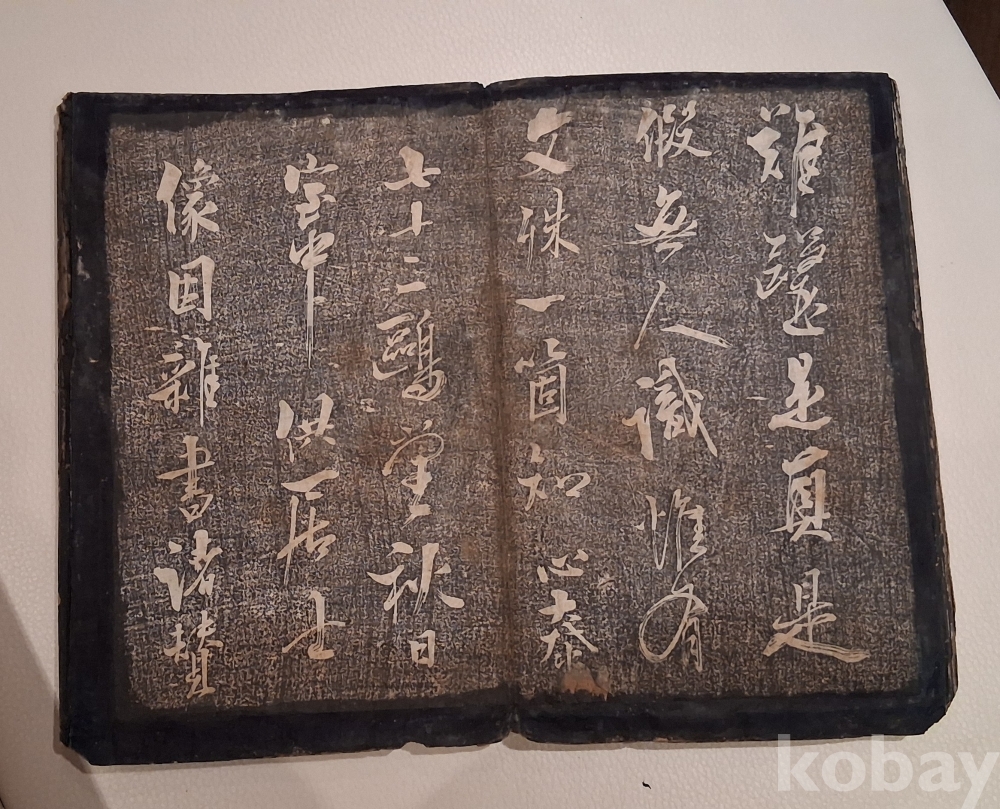 難是真是
假無人識惟有
文殊一箇知 心
七十二鷗堂秋日
室中供一居士
像因雜書諸贊
kobay